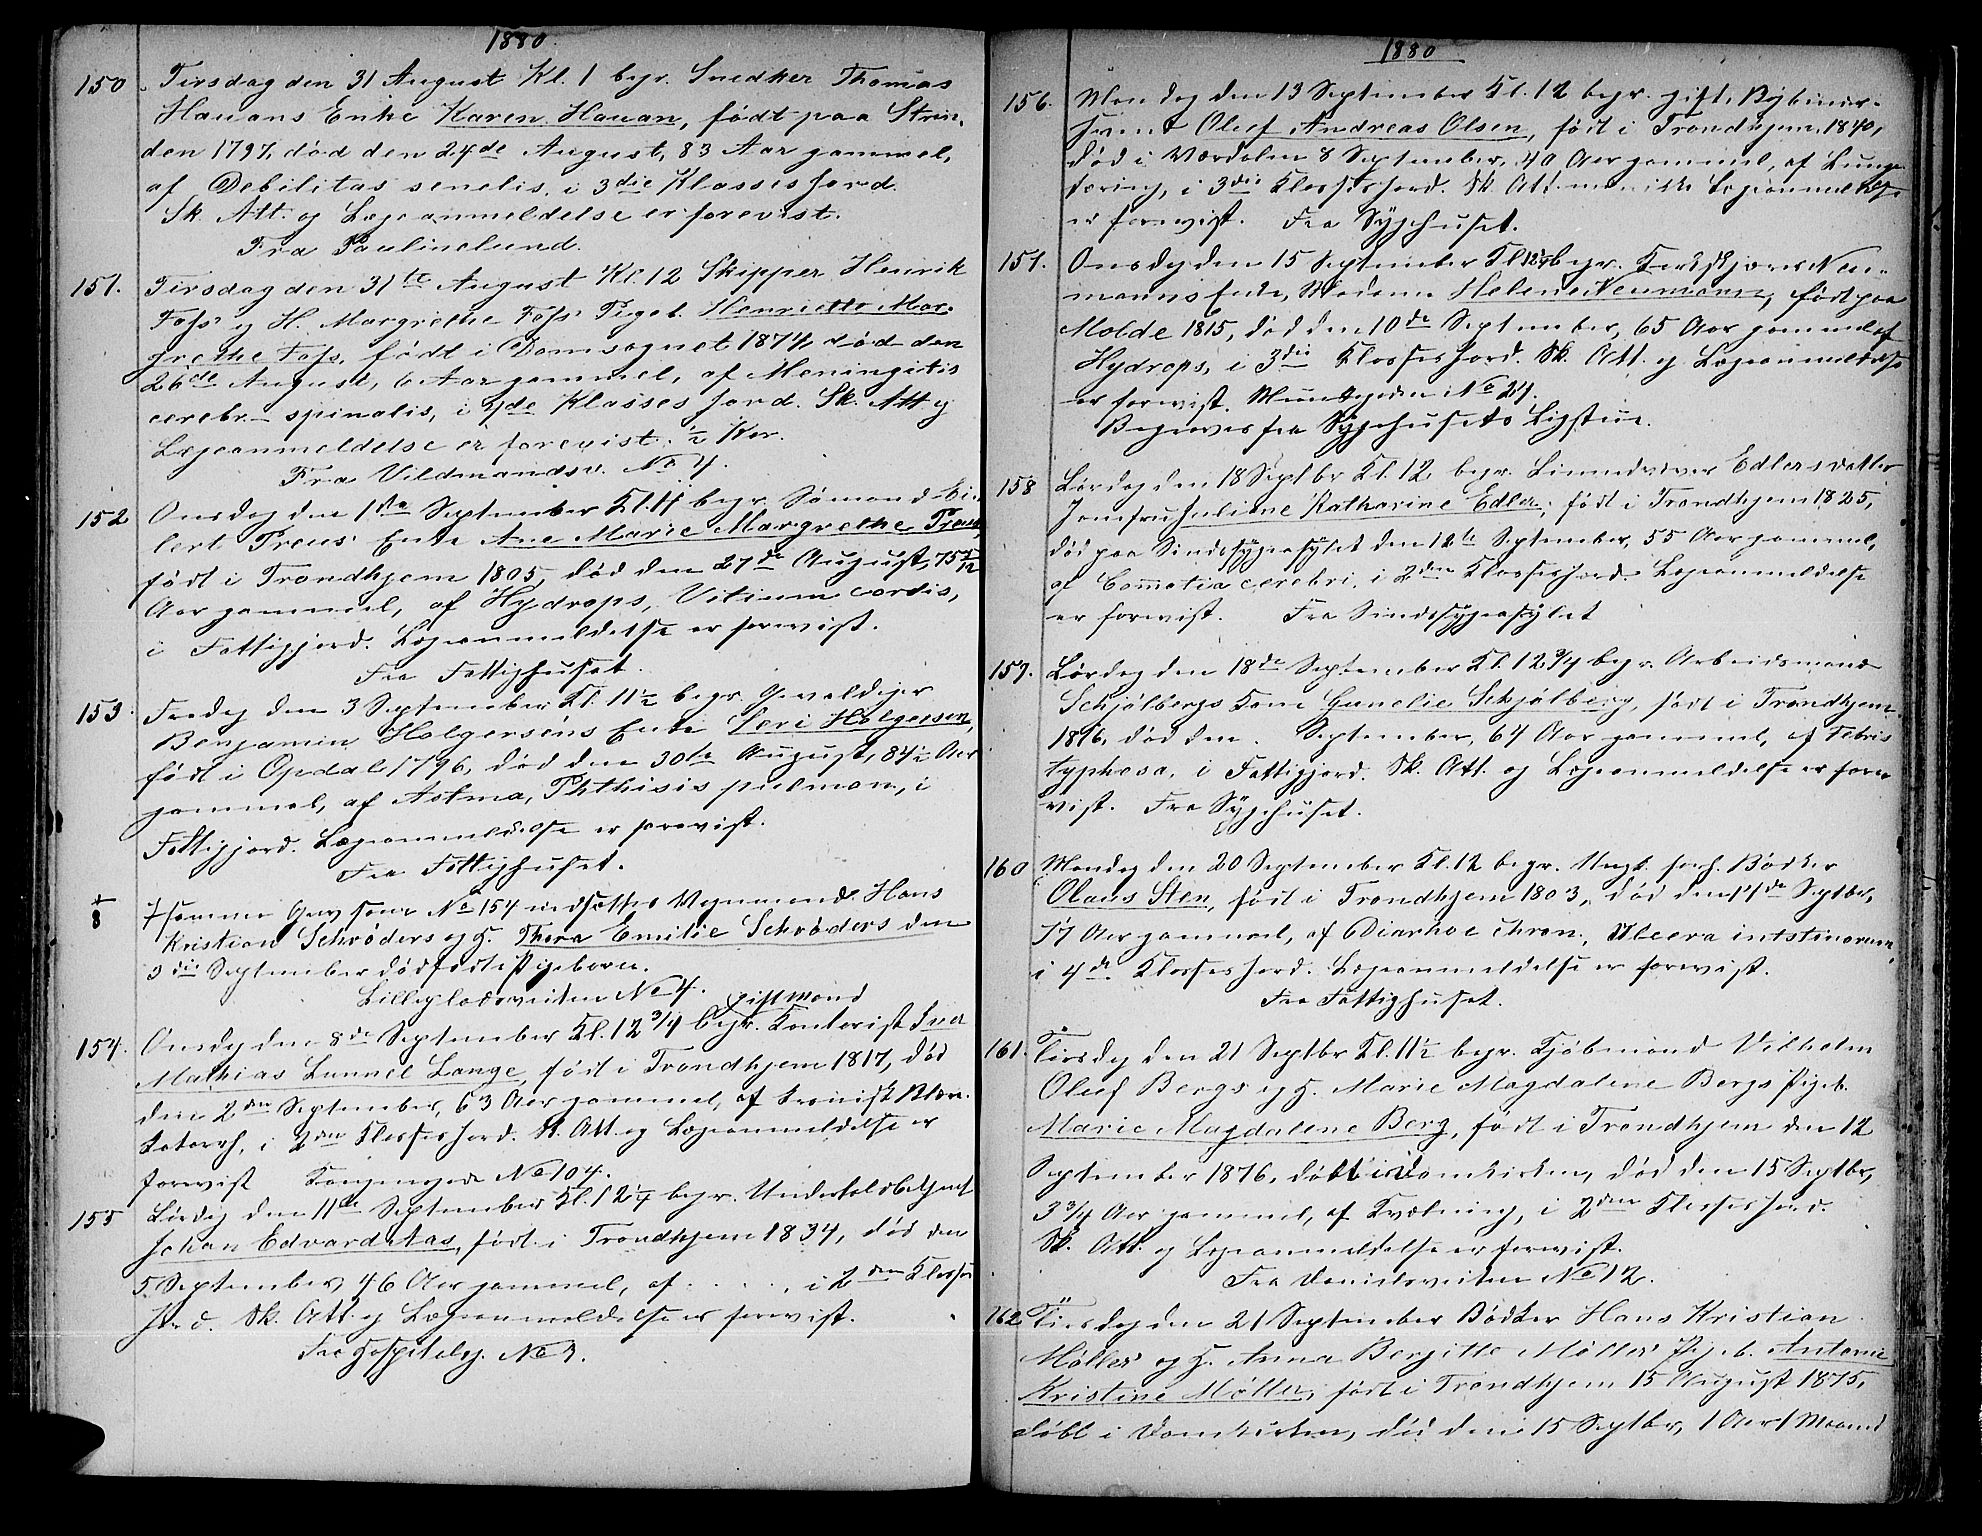 1880
150. Tirsdag den 31 August Kl. 1 begr. Snedker Thomas
Hauans Enke Karen Hauan, født paa Strin-
den 1797, død den 24de August, 83 Aar gammel,
af Debilitas senelis, i 3die Klasses Jord.
Sk. Att. og Lægeanmeldelse er forevist.
Fra Paulinelund.
151. Tirsdag den 31te August Kl. 12 Skipper Henrik
Foss' og H. Margrethe Foss' Pigeb. Henriette Mar-
grethe Foss, født i Domsognet 1874 død den
26de August, 6 Aar gammel, af Meningitis
cerebr. spinalis, i 4de Klasses Jord. Sk. Att og
Lægeanmeldelse er forevist. ½ Kor.
Fra Vildmandsv. No 4.
152 Onsdag den 1ste September Kl. 11 begr. Sømand Ei-
lert Preus' Enke Ane Marie Margrethe Preus,
født i Trondhjem 1805, død den 27de August, 75
Aar gammel, af Hydrops, Vitium cordis,
i Fattigjord. Lægeanmeldelse er forevist.
Fra Fattighuset.
153. Fredag den 3 September Kl. 11½ begr. Gevaldiger
Benjamin Holgersens Enke Seri Holgersen,
født i Opdal 1796, død den 30te August, 84½ Aar
gammel, af Astma, Phthisis pulmon, i
Fattigjord. Lægeanmeldelse er forevist.
Fra Fattighuset.
+
8 I samme Grav som No 154 nedsættes Vognmand Hans
Kristian Schrøders og H. Thora Emilie Schrøders den
3die September dødfødte Pigebarn.
Lillegladsveiten No 4.
gift mand
154. Onsdag den 8de September Kl. 12¾ begr. Kontorist
Mathias Lunnel Lange, født i Trondhjem 1817, død
den 2den September, 63 Aar gammel, af kronisk Blære-
katarrh, i 2den Klasses Jord. Sk. Att og Lægeanmeldelse er
forevist Kongensgade No 104.
155 Lørdag den 11te September Kl. 12¼ begr. Underholdsbetjent
Johan Edvard Aas, født i Trondhjem 1834, død den
5 September, 46 Aar gammel, af . . . . , i 2den Klasses
Jord. Sk. Att. og Lægeanmeldelse er forevist.
Fra Hospitalsg. No 3.
1880
156. Mandag den 13 September Kl. 12 begr. gift,
Oluf Andreas Olsen, født i Trondhjem 1840,
død i Værdalen 8 September, 40 Aar gammel, af Lunge-
tæring, i 3die Klasses Jord. Sk. Att. Lægeanmeldelse
er forevist. Fra Sygehuset.
157. Onsdag den 15 September Kl 12¼ begr. Neu-
manns Enke, Madame Helene Neumann, født paa
Molde 1815, død den 10de September, 65 Aar gammel af
Hydrops, i 3die Klasses Jord. Sk. Att. og Lægeanmeldelse
er forevist. Munkegaden No 24.
Begraves fra Sygehusets Ligstue.
158 Lørdag den 18 Septbr Kl. 12 begr. Linnedvæver Edlers datter
Jomfru Juliane Katharine Edler, født i Trondhjem 1825,
død paa Sindssygeasylet den 12te September, 55 Aar gammel,
af Comotia cerebri, i 2den Klasses Jord. Lægeanmeldelse
er forevist. Fra Sindssygeasylet
159. Lørdag den 18de September Kl. 12¾ begr. Arbeidsmand
Schjølbergs Kone Gunelie Schjølberg, født i Trondhjem
1816, død den . September, 64 Aar gammel, af Febris
typhosa, i Fattigjord. Sk. Att. og Lægeanmeldelse er fore-
vist. Fra Sygehuset.
160 Mandag den 20 September Kl. 12 begr. Ungk. forh. Bødker
Olaus Sten, født i Trondhjem 1803, død den 14de Septbr,
77 Aar gammel, af Diarhoe chron., Ulcera intstinorum,
i 4de Klasses Jord. Lægeanmeldelse er forevist.
Fra Fattighuset.
161. Tirsdag den 21 Septbr Kl. 11½ begr. Kjøbmand Vilhelm
Oluf Bergs og H. Marie Magdalene Bergs Pigeb.
Marie Magdalene Berg, født i Trondhjem den 12
September 1876, døbt i Domkirken, død den 15 Septbr,
3¾ Aar gammel, af Kvælning, i 2den Klasses Jord.
Sk. Att. og Lægeanmeldelse er forevist.
Fra Danielsveiten No 12.
162 Tirsdag den 21 September Bødker Hans Kristian
Møllers og H. Anna Bergitte Møllers Pigeb. Antonie
Kristine Møller, født i Trondhjem 15 August 1875,
døbt i Domkirken, død den 15 Septbr, 1 Aar 1 Maaned